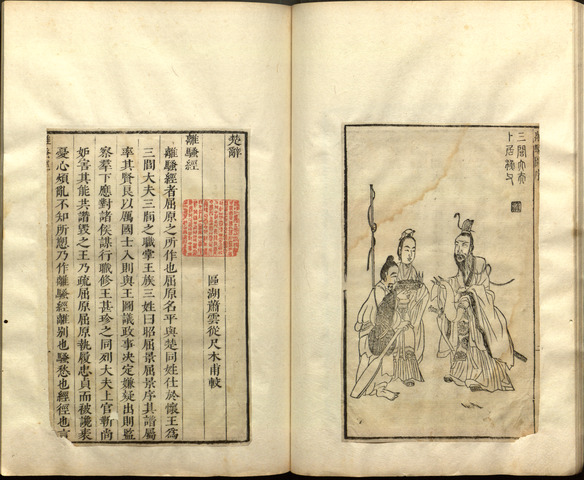 三閭大夫
卜居漁父
楚辭
區湖蕭雲從尺木甫較
離騷經
離騷經者屈原之所作也屈原名平與楚同姓仕於懷王為
三閭大夫三閭之職掌王族三姓曰昭屈景屈景序其譜屬
率其賢良以厲國士入則與王圖議政事決定嫌疑出則監
察羣下應對諸侯謀行職修王甚珍之同列大夫上官靳尚
妒害其能共譖毀之王乃疏屈原屈原執履忠貞而被讒衺
憂心煩亂不知所愬乃作離騷經離別也騷愁也經徑也言